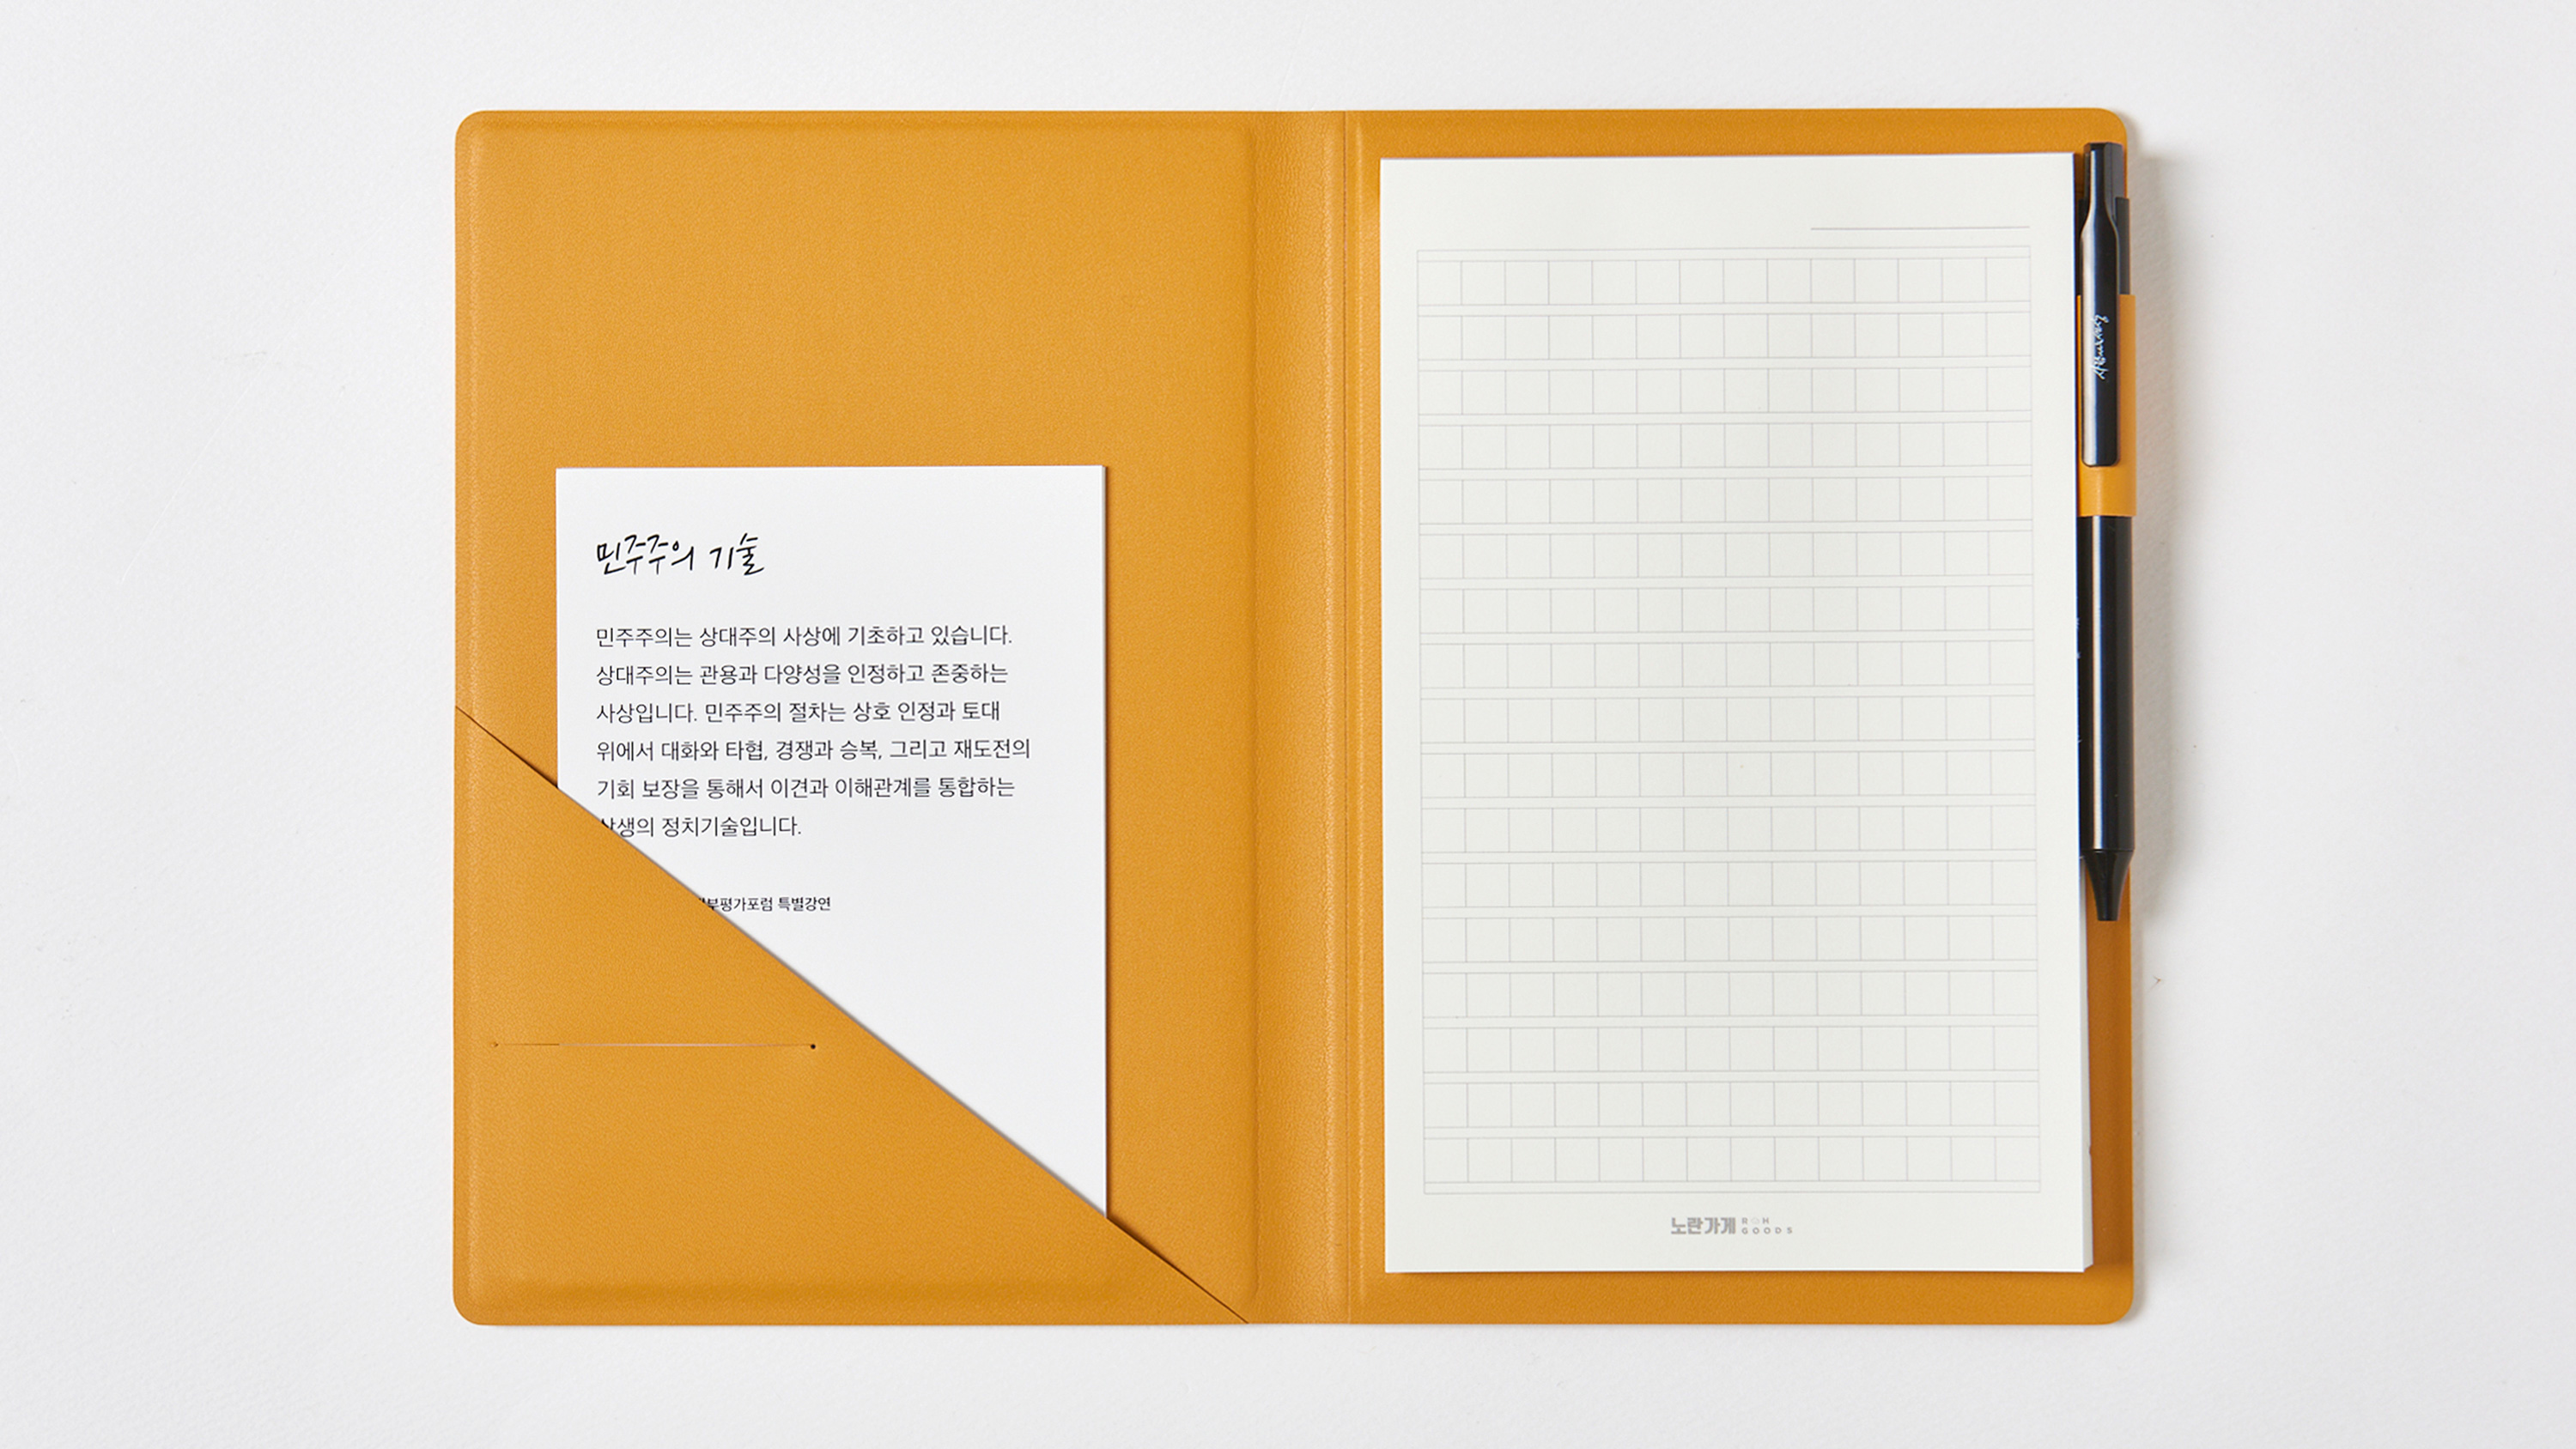 민주주의 기술
민주주의는 상대주의 사상에 기초하고 있습니다.
상대주의는 관용과 다양성을 인정하고 존중하는
사상입니다. 민주주의 절차는 상호 인정과 토대
위에서 대화와 타협, 경쟁과 승복, 그리고 재도전의
기회 보장을 통해서 이견과 이해관계를 통합하는
정치기술입니다.
특별강연
노란가게 ROH
GOODS